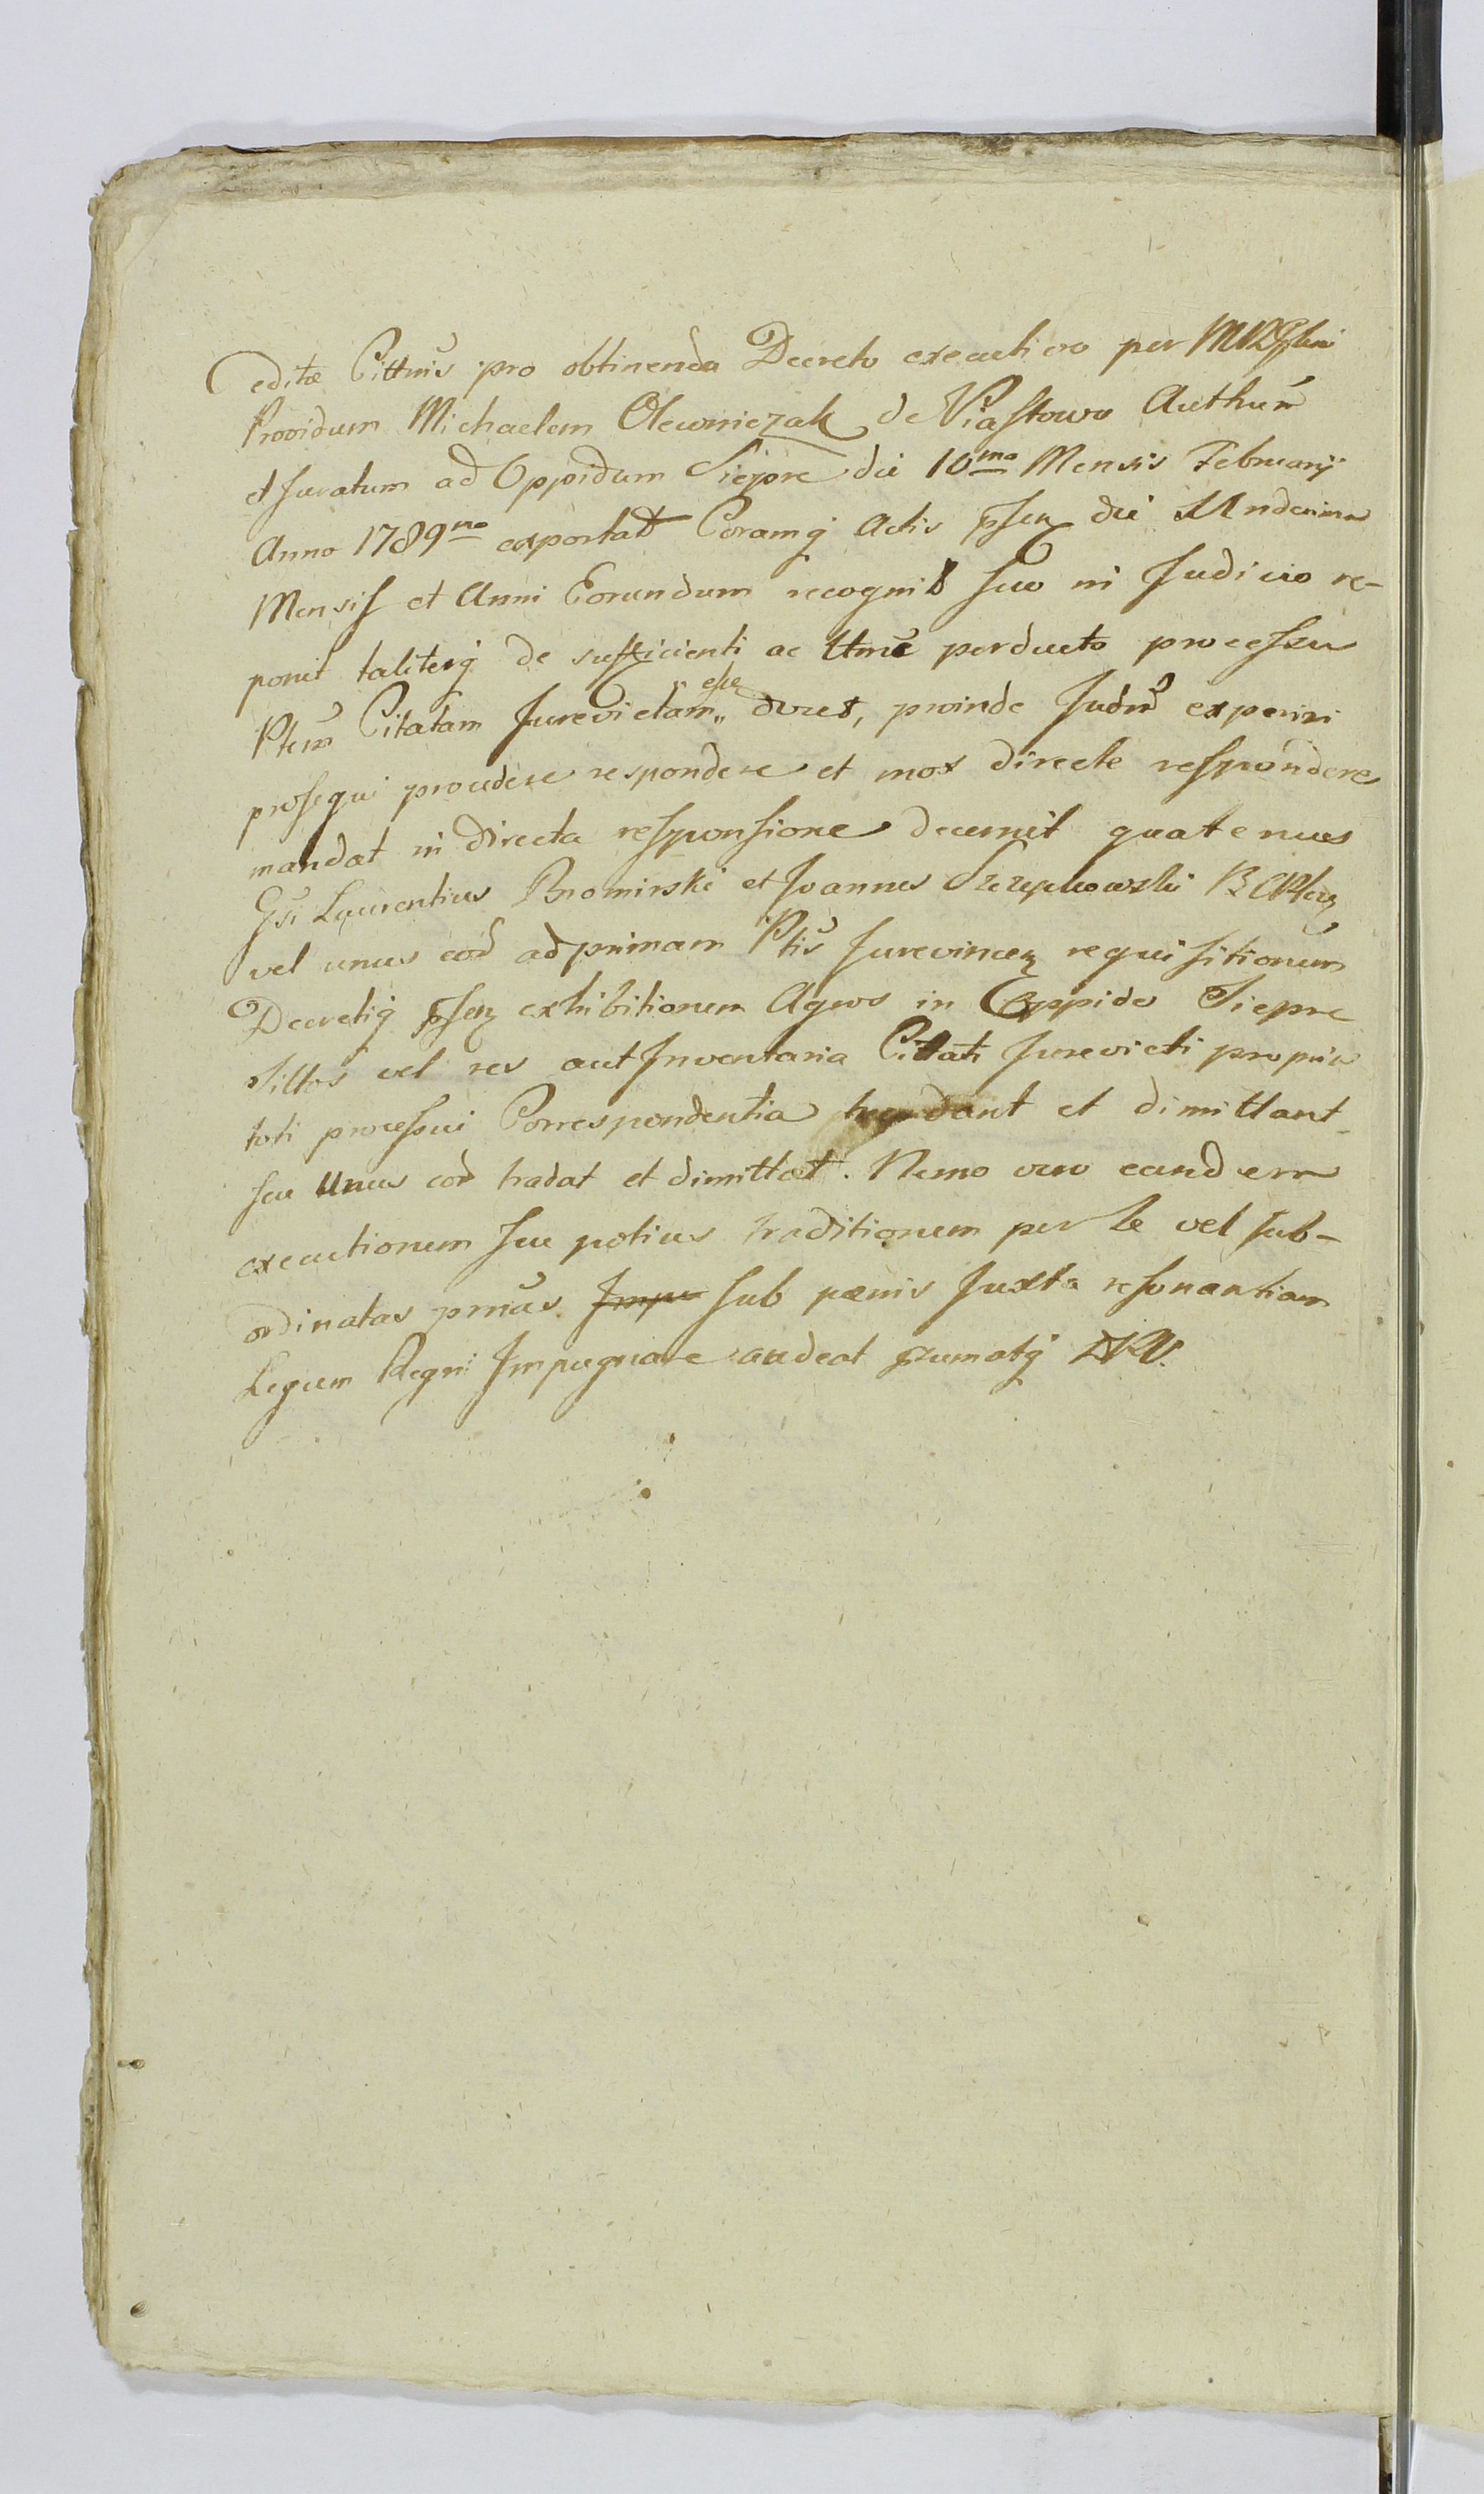 editæ Cittnis pro obtinenda Decreto executivo per
Providum Michaelem Olewniczak de Piastowo Authum
et Juratum ad Oppidum Siepre die 10ma Mensis Februarij
Anno 1789no exportatt Coramq Actis pſen die Undecima
Mensiſ et Anni Eorundum recognitt ſuo in Judicio re-
ponit taliterq de sufficienti ac ltme perducto proceſsu
Ptem Citatam Jurevictam „eſse„ dvcet, proinde Judm experiri
proſequi procedere respondere et mox directe reſpondere
mandat in directa reſponsione decernit quatenus
Gsi Laurentius Bromirski et Joannes Szczepkowski
vel unus eod ad primam Ptis Jurevincen requiſitionem
Decretiq pſen exhibitionem Agros in Oppido Siepre
Sittos vel res aut Inventaria Citati Jurevicti propria
toti proceſsui Correspondentia tradant et dimittant
ſeu Unus eod tradat et dimittat. Nemo vero eandem
executionem ſeu potius traditionem per se vel ſub-
ordinatas prnas Impu Sub pænis Juxta reſonantiam
Legum Regni Impugnare audeat